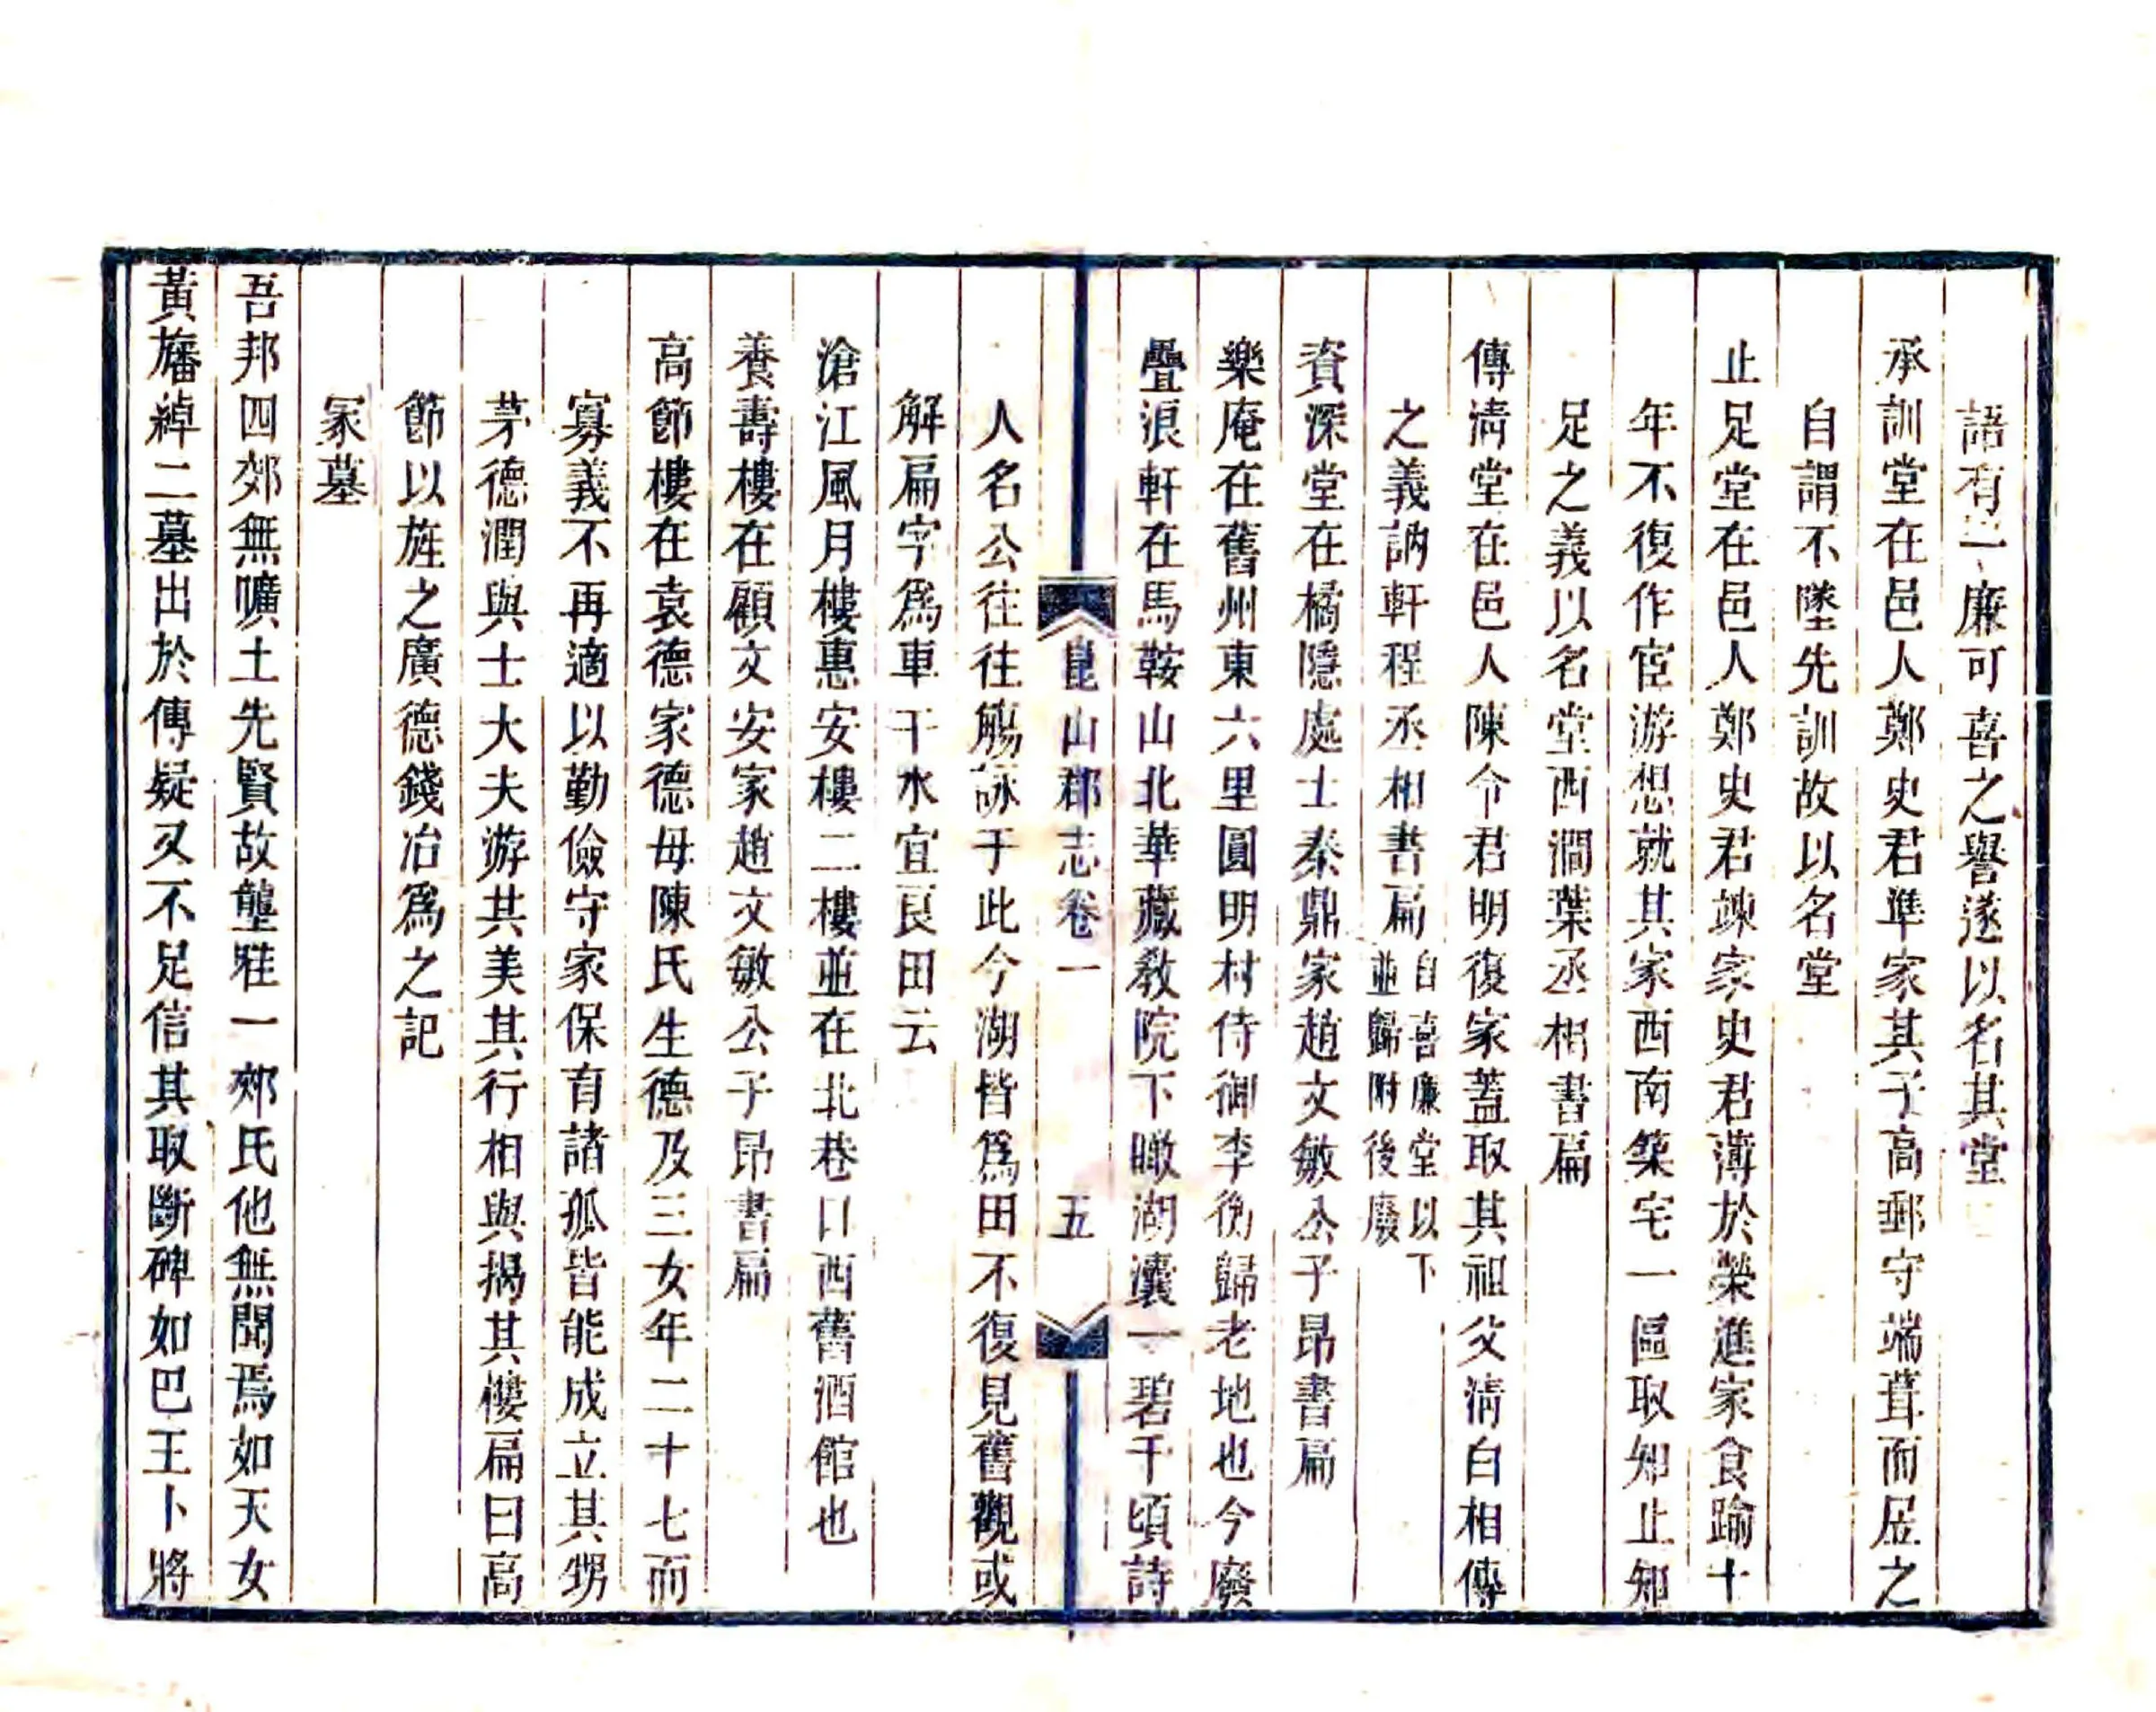 語有二廉可喜之譽遂以名其堂
承訓堂在邑人鄭史君準家其子高郵守端葺而居之
自謂不墜先訓故以名堂
止足堂在邑人鄭史君竦家史君薄於榮進家食踰十
年不復作宦游想就其家西南築宅一區取知止知
足之義以名堂西澗葉丞相書扁
傳清堂在邑人陳令君明復家蓋取其祖父清白相傳
之義訥軒程丞相書扁自喜廉堂以下並歸附後廢
資深堂在橘隱處士秦鼎家趙文敏公子昂書扁
樂庵在舊州東六里圓明村侍御李衡歸老地也今廢
疊浪軒在馬鞍山北華藏教院下瞰湖瀼一碧千頃詩
崑山郡志卷一 五
人名公往往觴詠于此今湖皆爲田不復見舊觀或
解扁字爲車干水宜良田云
滄江風月樓惠安樓二樓並在北巷口西舊酒館也
養壽樓在顧文安家趙文敏公子昂書扁
高節樓在袁德家德母陳氏生德及三女年二十七而
寡義不再適以勤儉守家保育諸孤皆能成立其甥
茅德潤與士大夫游其美其行相與揭其樓扁曰高
節以旌之廣德錢冶爲之記
冢墓
吾邦四郊無曠土先賢故壟雖一郟氏他無聞焉如天女
黃旛綽二墓出於傳疑又不足信其取斷碑如巴王卜將